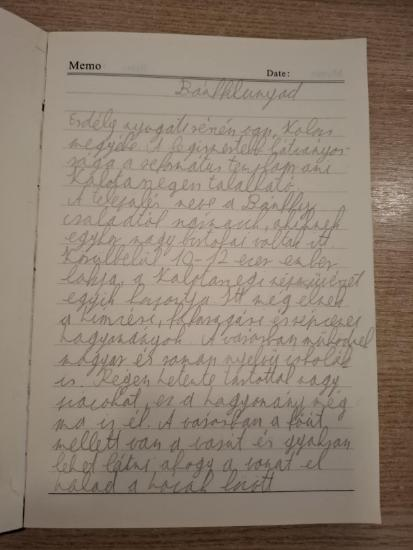 Memo
Date:
Bánffihunyad
Erdély nyugati részén van, Kolozs
megyébe. A legismertebb látványos-
sága a református templom ami
Kalotaszegen található.
A település neve a Bánffy
családtól származik, akiknek
egykor nagy birtokai voltak itt.
Körülbelül 10-12 ezer ember
lakja, a Kalotaszegi népművészet
egyik központja. Itt még élnek
a hímzési, fafaragási és népzenei
hagyományok. A városban működnek
magyar és román nyelvű iskolák
is. Régen hetente tartottak nagy
piacokat, ez a hagyomány még
ma is él. A városban a főút
mellett van a vasút és gyakran
lehet látni, ahogy a vonat el
halad a házak között